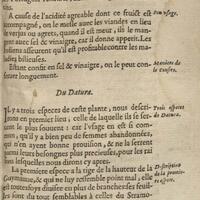 A cause de l'acidité agreable dont ce fruict est
accompagné, on le mesle auec les viandes en lieu
de verjus ou agrets, quand il est meur, ils le man-
gent auec sel & vinaigre, car il donne appetit. Les
Indiens asseurent qu'il est profitable contre les ma-
ladies bilieuses.
Estant confit en sel & vinaigre, on le peut con-
seruer longuement.
Son vsage.
Maniere de
le confire.
Du Datura.
IL y a trois especes de ceste plante, nous descri-
rons en premier lieu, celle de laquelle ils se ser-
uent le plus souuent : car l'vsage en est si com-
mun, qu'il y a bien peu de femmes abandonnées,
qui n'en ayent bonne prouision, & ne la serrent
parmi leurs besongnes plus precieuses, pour les rai-
sons lesquelles nous dirons cy apres.
Trois especes
de Datura.
La premiere espece a la tige de la hauteur de la
Guymauue, & qui ne luy ressemble point mal, elle est
toutesfois diuisee en plus de branches: ses feuil-
les sont du tout semblables à celles du Stramo-
Description
de la premie-
re espece.